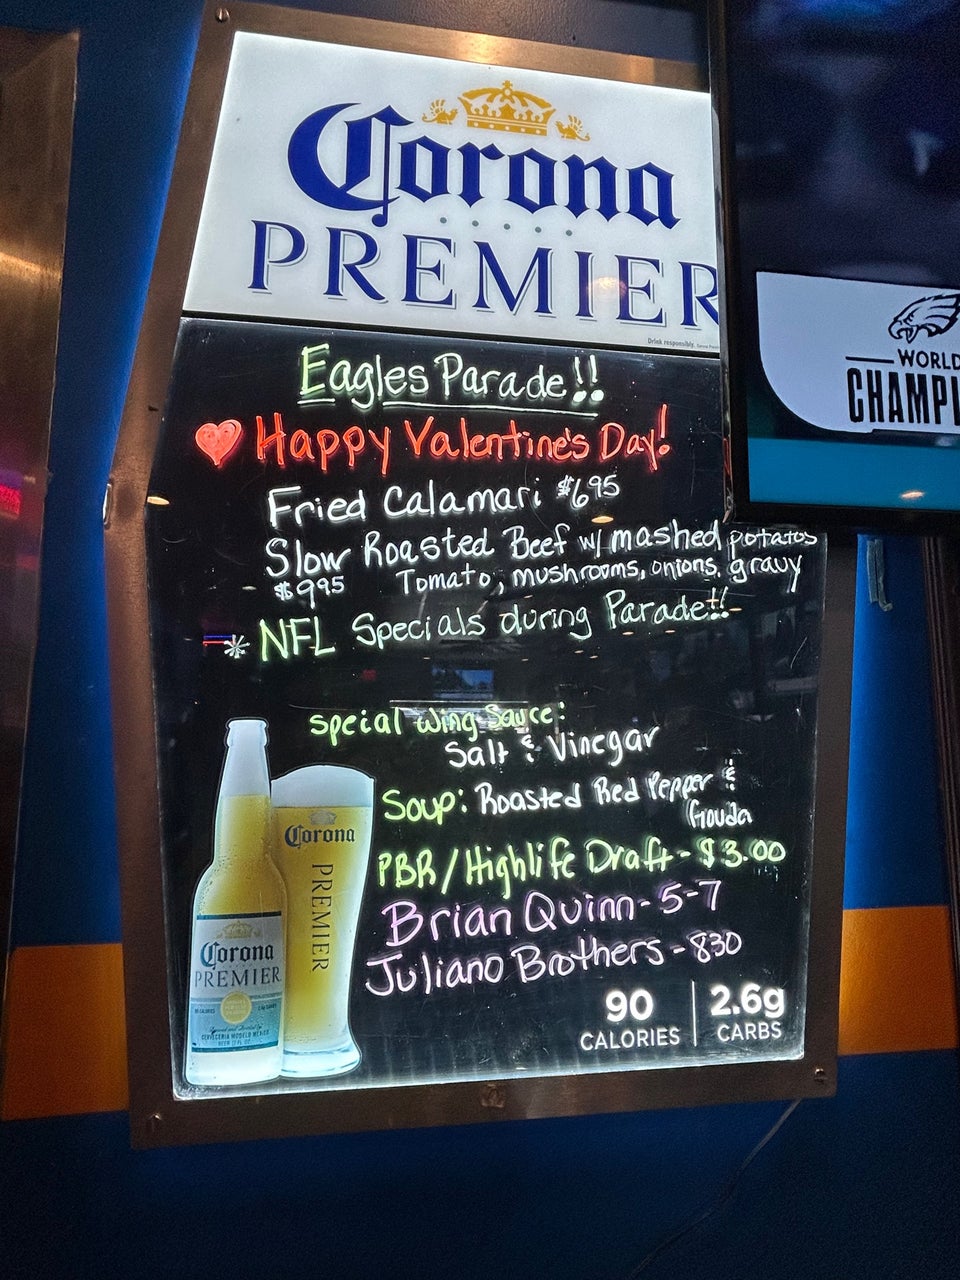 Corona
PREMIER
Drink responsibly.
WORLD
CHAMPI
Eagles Parade!!
Happy Valentine's Day!
Fried Calamari $6.95
Slow Roasted Beef w/ mashed potatos
$9.95 Tomato, mushrooms, onions, gravy
* NFL Specials during Parade!!
Special Wing Sauce:
Salt & Vinegar
Soup: Roasted Red Pepper &
Gouda
PBR/Highlife Draft - $3.00
Brian Quinn - 5-7
Juliano Brothers - 830
Corona
PREMIER
Corona
PREMIER
CERVECERIA MODELO MEXICO
90
CALORIES
2.6g
CARBS